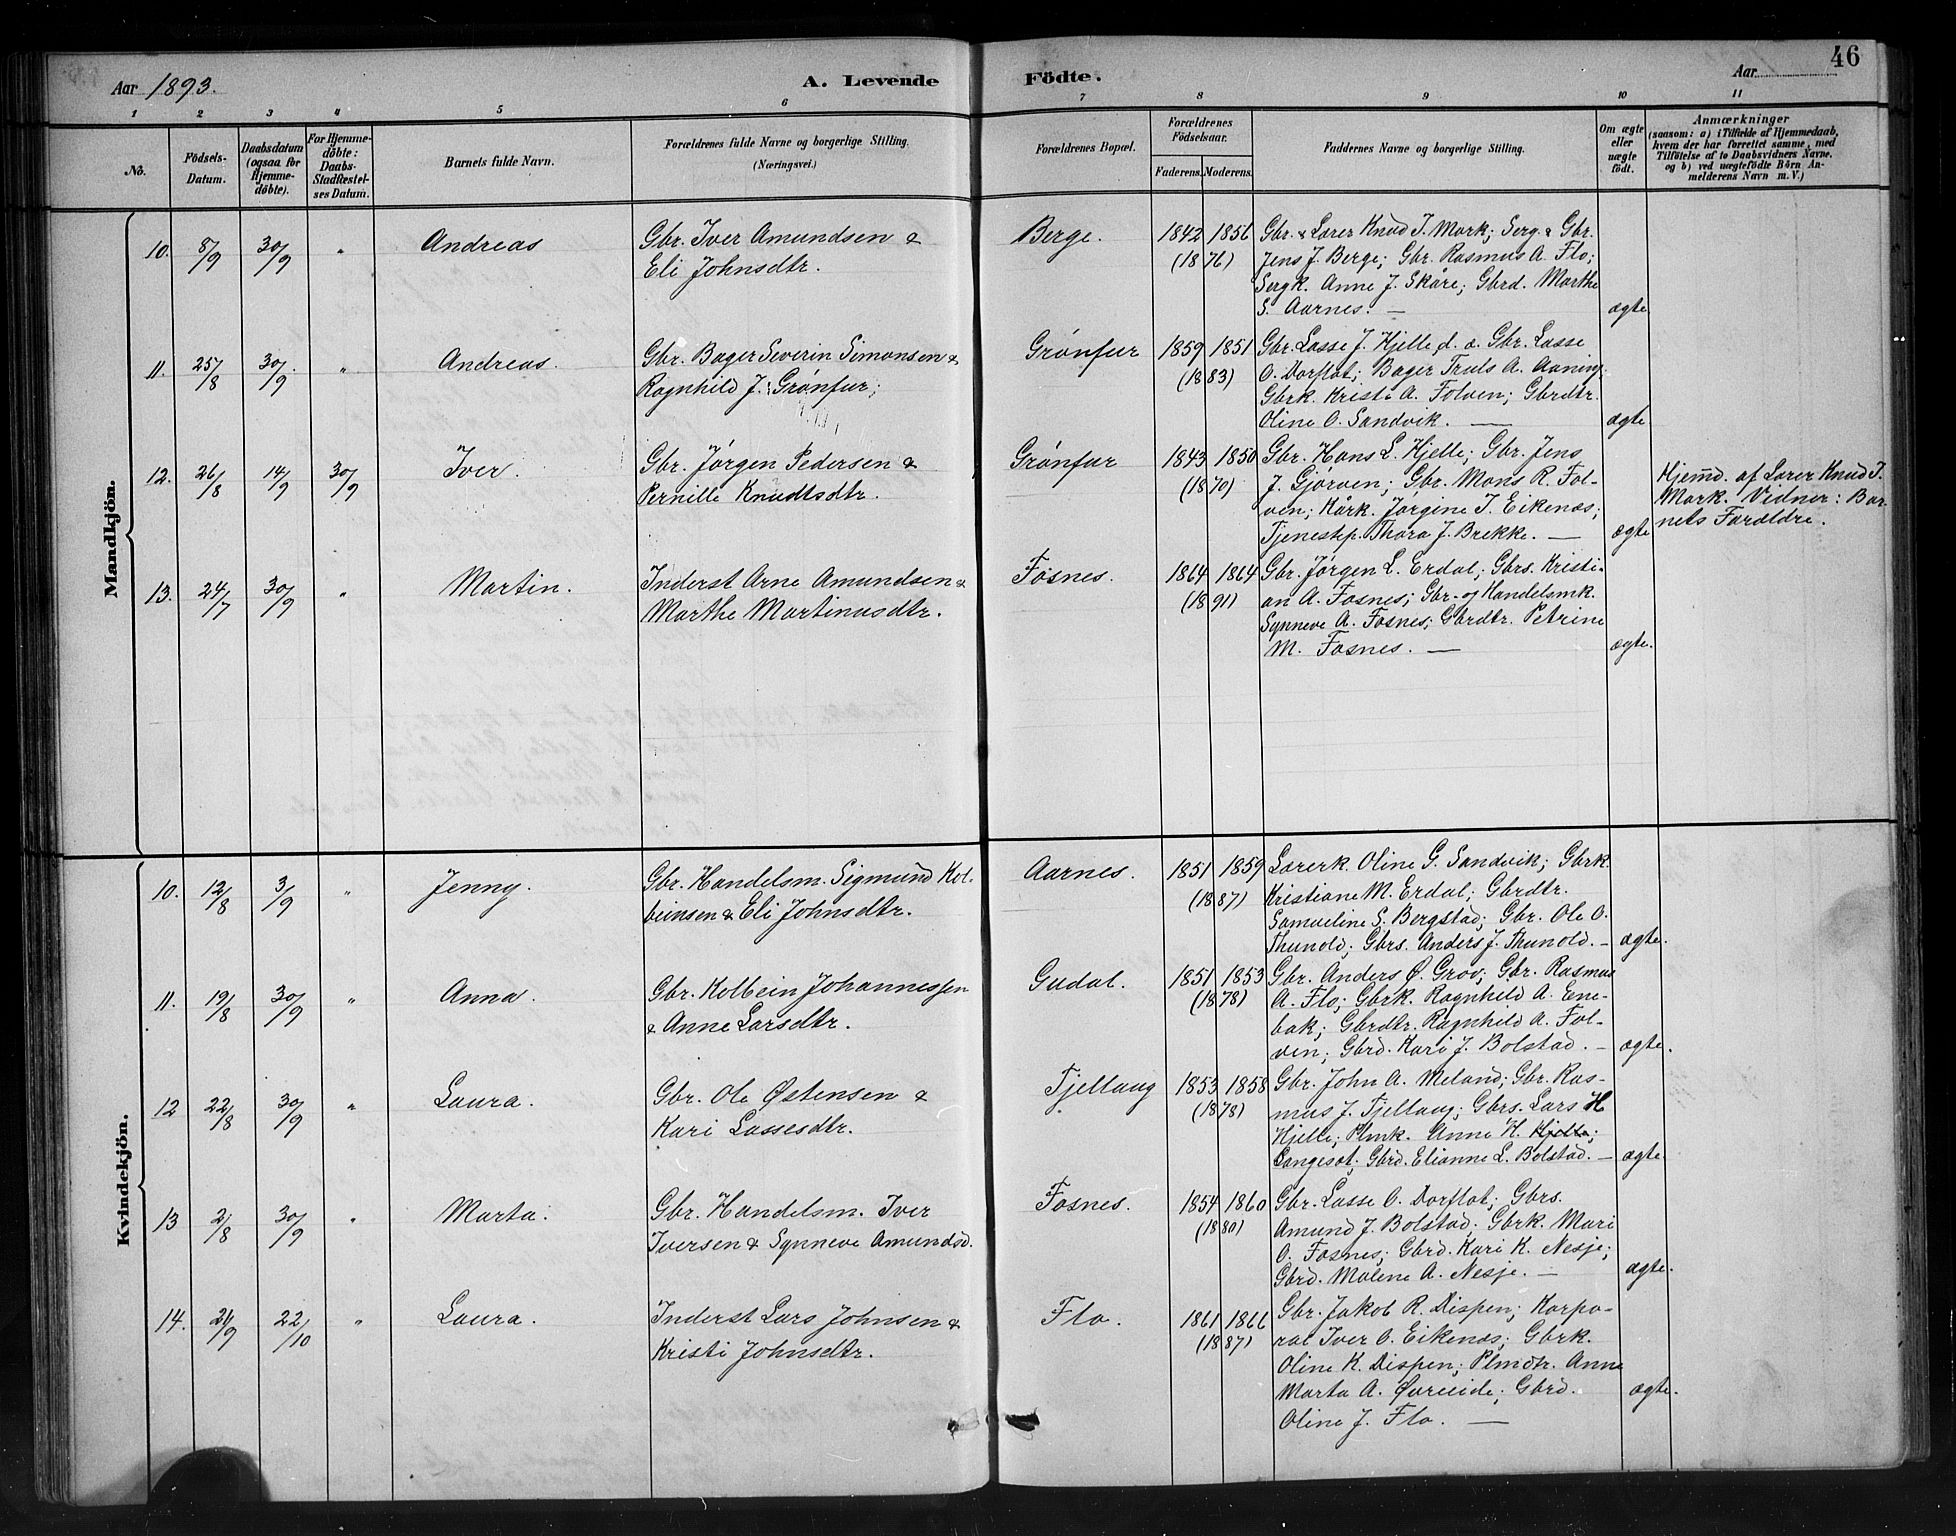 46
Aar 1893.
A. Levende Födte.
Aar
1 2 3 4 5 6 7 8 9 10 11
No.
Födsels-Datum.
Daabsdatum (ogsaa for Hjemme-döbte).
For Hjemme-döbte: Daabs-Stadfæstel-ses Datum.
Barnets fulde Navn.
Forældrenes fulde Navne og borgerlige Stilling. (Næringsvei.)
Forældrenes Bopæl.
Forældrenes Födselsaar.
Faderens. Moderens.
Faddernes Navne og borgerlige Stilling.
Om ægte eller uægte födt.
Anmærkninger
(saasom: a) i Tilfælde af Hjemmedaab, hvem der har forrettet samme, med Tilföielse af to Daabsvidners Navne, og b) ved uægtefödte Börn Anmelderens Navn m. V.)
Mandkjön.
10. 8/9 30/9 " Andreas
Gbr. Iver Amundsen &
Eli Johnsdtr.
Berge. 1842 1856
(1876)
Gbr. & Lærer Knud I. Mark; Serg. & Gbr.
Jens J. Berge; Gbr. Rasmus A. Flo;
Sergk. Anne J. Skåre; Gbrd. Marthe
S. Aarnes. —
ægte
11. 25/8 30/9 " Andreas.
Gbr. Bager Severin Simonsen &
Ragnhild J. Grønfur;
Grønfur 1859 1851
(1883)
Gbr. Lasse J. Hjelle, d. a. Gbr. Lasse
O. Dorflot; Bager Truls A. Aaning;
Gbrk. Kristi A. Folven; Gbrdtr.
Oline O. Sandvik. —
ægte
12. 26/8 14/9 30/9 Iver.
Gbr. Jørgen Pedersen &
Pernille Knudtsdtr.
Grønfur 1843 1850
(1870)
Gbr. Hans L. Hjelle; Gbr. Jens
J. Gjørven; Gbr. Mons R. Fol-
ven; Kårk. Jørgine I. Eikenæs;
Tjenestep. Thora J. Brekke. —
ægte
Hjemd. af Lærer Knud I.
Mark. Vidner: Bar-
nets Forældre.
13. 24/7 30/9 " Martin.
Inderst Arne Amundsen &
Marthe Martinusdtr.
Fosnes. 1864 1864
(1891)
Gbr. Jørgen L. Erdal; Gbrs. Kristi-
an A. Fosnes; Gbr- og Handelsmk.
Synneve A. Fosnes; Gbrdtr. Petrine
M. Fosnes. —
ægte.
Kvindekjön.
10. 12/8 3/9 " Jenny.
Gbr. Handelsm. Sigmund Kol-
beinsen & Eli Johnsdtr.
Aarnes. 1851 1859
(1887)
Lærerk. Oline G. Sandvik; Gbrk.
Kristiane M. Erdal; Gbrdtr.
Samueline S. Bergstad; Gbr. Ole O.
Thunold; Gbrs. Anders J. Thunold. —
ægte.
11. 19/8 30/9 " Anna.
Gbr. Kolbein Johannessen
& Anne Larsdtr.
Gudal. 1851 1853
(1878)
Gbr. Anders Ø. Grov; Gbr. Rasmus
A. Flo; Gbrk. Ragnhild A. Ene-
bak; Gbrdtr. Ragnhild A. Fol-
ven; Gbrd. Kari J. Bolstad. —
ægte.
12 22/8 30/9 " Laura.
Gbr. Ole Østensen &
Kari Lassesdtr.
Tjellaug 1853 1858
(1878)
Gbr. John A. Meland; Gbr. Ras-
mus J. Tjellaug; Gbrs. Lars H
Hjelle; Plmk. Anne H. Hjelle;
Langesæt; Gbrd. Elianne L. Bolstad. —
ægte.
13 2/8 30/9 " Marta.
Gbr. Handelsm. Iver
Iversen & Synneve Amundsd.
Fosnes. 1854 1860
(1880)
Gbr. Lasse O. Dorflot; Gbrs.
Amund J. Bolstad. Gbrk. Mari
O. Fosnes; Gbrd. Kari K. Nesje;
Gbrd. Malene A. Nesje. —
ægte.
14. 24/9 22/10 " Laura.
Inderst Lars Johnsen &
Kristi Johnsdtr.
Flo. 1861 1866
(1887)
Gbr. Jakob R. Dispen; Korpo-
ral Iver O. Eikenæs; Gbrk.
Oline K. Dispen; Plmdtr. Anne
Marta A. Øvreeide; Gbrd.
Oline J. Flo. —
ægte.